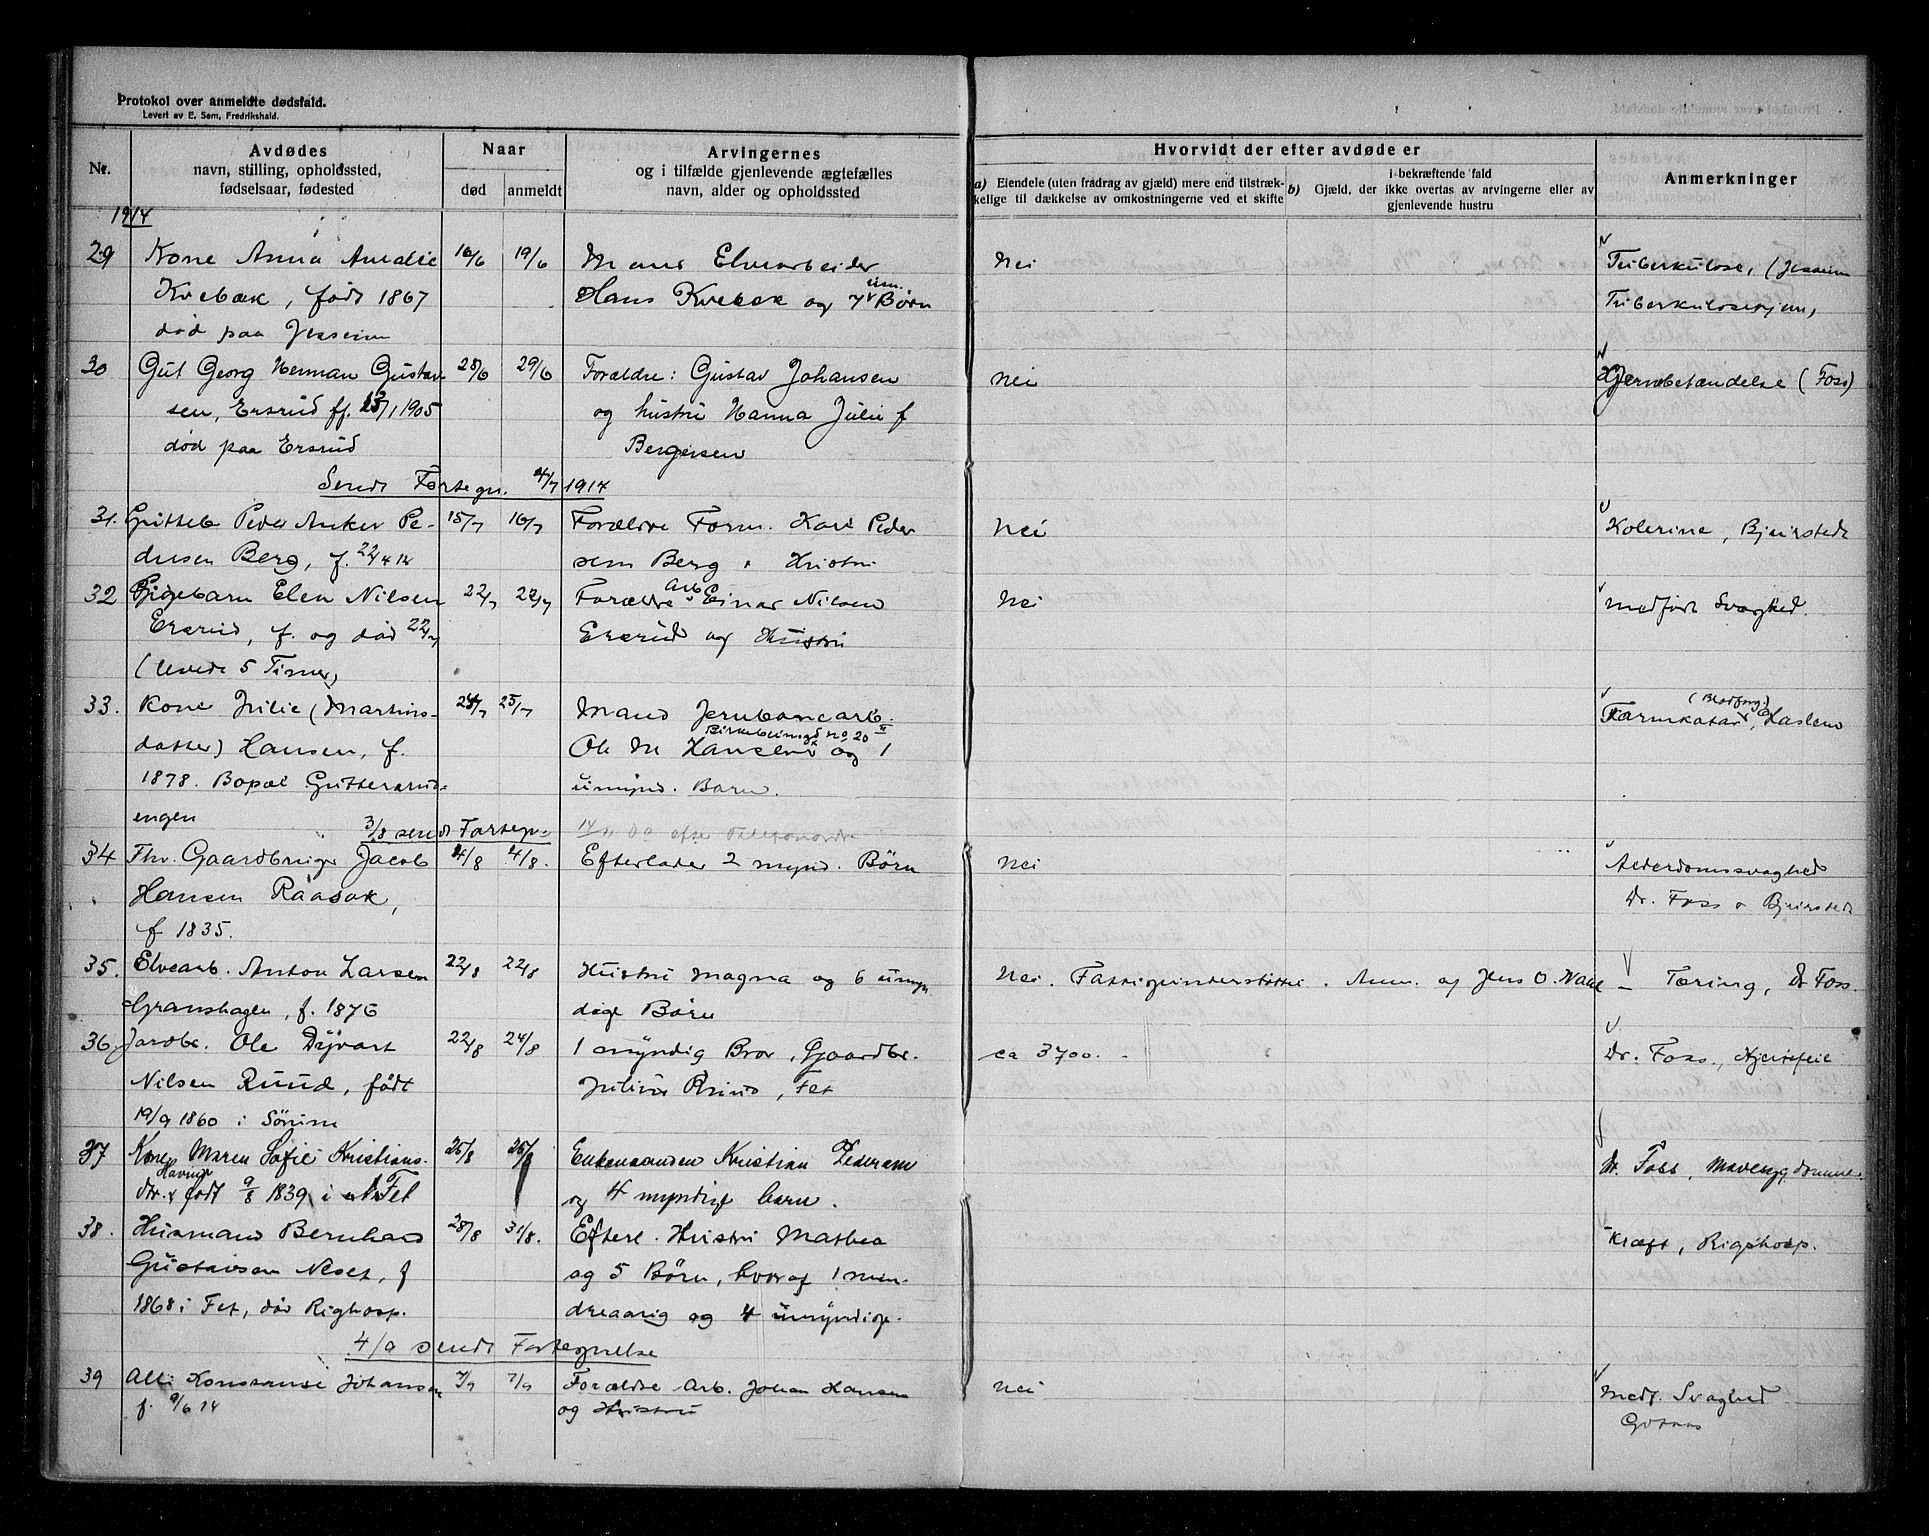 Protokol over anmeldte dødsfald.
Levert av E. Sem, Fredrikshald.
Nr.
Avdødes
navn, stilling, opholdssted,
fødselsaar, fødested
Naar
død
anmeldt
Arvingernes
og i tilfælde gjenlevende ægtefælles
navn, alder og opholdssted
Hvorvidt der efter avdøde er
a) Eiendele (uten fradrag av gjæld) mere end tilstræk-
kelige til dækkelse av omkostningerne ved et skifte
i bekræftende fald
b) Gjæld, der ikke overtas av arvingerne eller av
gjenlevende hustru
Anmerkninger
1914
29 Kone Anna Amalie 16/6 19/6 Mand Elvearbeider Nei Tuberkulose, (Jesseim
Kvebæk, født 1867 Hans Kvebæk og 7 um. Børn Tuberkulosehjem,
død paa Jesseim
30 Gut Georg Herman Gustav- 28/6 29/6 Forældre: Gustav Johansen Nei Hjernebetændelse (Foss)
sen, Ersrud f. 13/1 1905 og hustru Hanna Julie f
død paa Ersrud Bergersen
Sendt Fortegn. 4/7 1914
31. Guttebarn Peder Anker Pe- 15/7 16/7 Forældre Form. Karl Peder Nei Kolerine, Bjerstede
dersen Berg, f. 22/4 14 sen Berg & Hustru
32 Pigebarn Elen Nilsen 22/7 22/7 Forældre Arb. Einar Nilsen Nei Medfødt Svaghed.
Ersrud, f. og død 22/7 Ersrud og Hustru
(levede 5 Timer)
33. Kone Julie (Martins- 24/7 25/7 Mand Jernbanearb. Tarmkatar,
datter) Hansen, f. Ole M Hansen og 1
1878. Bopæl Gutterrud- umynd. Barn.
engen
3/8 sendt Fortegn.
34 Fhv. Gaardbruger Jacob 4/8 4/8. Efterlader 2 mynd. Børn Nei Alderdomssvaghed
Hansen Raasok, Dr. Foss & Bjerstede
f 1835.
35. Elvearb. Anton Larsen 22/8 22/8 Hustru Magna og 6 umyn Nei. Fattigunderstøttet. Anm. af Jens O. — Tæring, Dr Foss.
Granshagen, f. 1876 dige Børn
36. Jordbr. Ole Dyvart 22/8 24/8 1 myndig Bror, Gaardbr. ca 3700. - Dr. Foss, Hjertefeil
Nilsen Ruud, født Julius Ruud, Fet
19/9 1860 i Sørum
37 Kone Maren Sofie Kristians- 25/8 26/8 Enkemanden Kristian Pedersen Dr. Foss, Mavesygdomme.
dtr. født 9/8 1839 i Fet og 4 myndige barn.
38. Husmand Bernhard 28/8 31/8. Efterl. Hustru Mathea Kræft, Rigshosp.
Gustavsen Neset, f og 5 Børn, hvoraf 1 min-
1868 i Fet, død Righosp. dreaarig og 4 umyndige.
4/9 sendt Fortegnelse
39 Alli Konstanse Johansen 7/9 7/9 Forældre Arb. Johan Hansen Nei Medf. Svaghed
f. 9/6 14 og Hustru